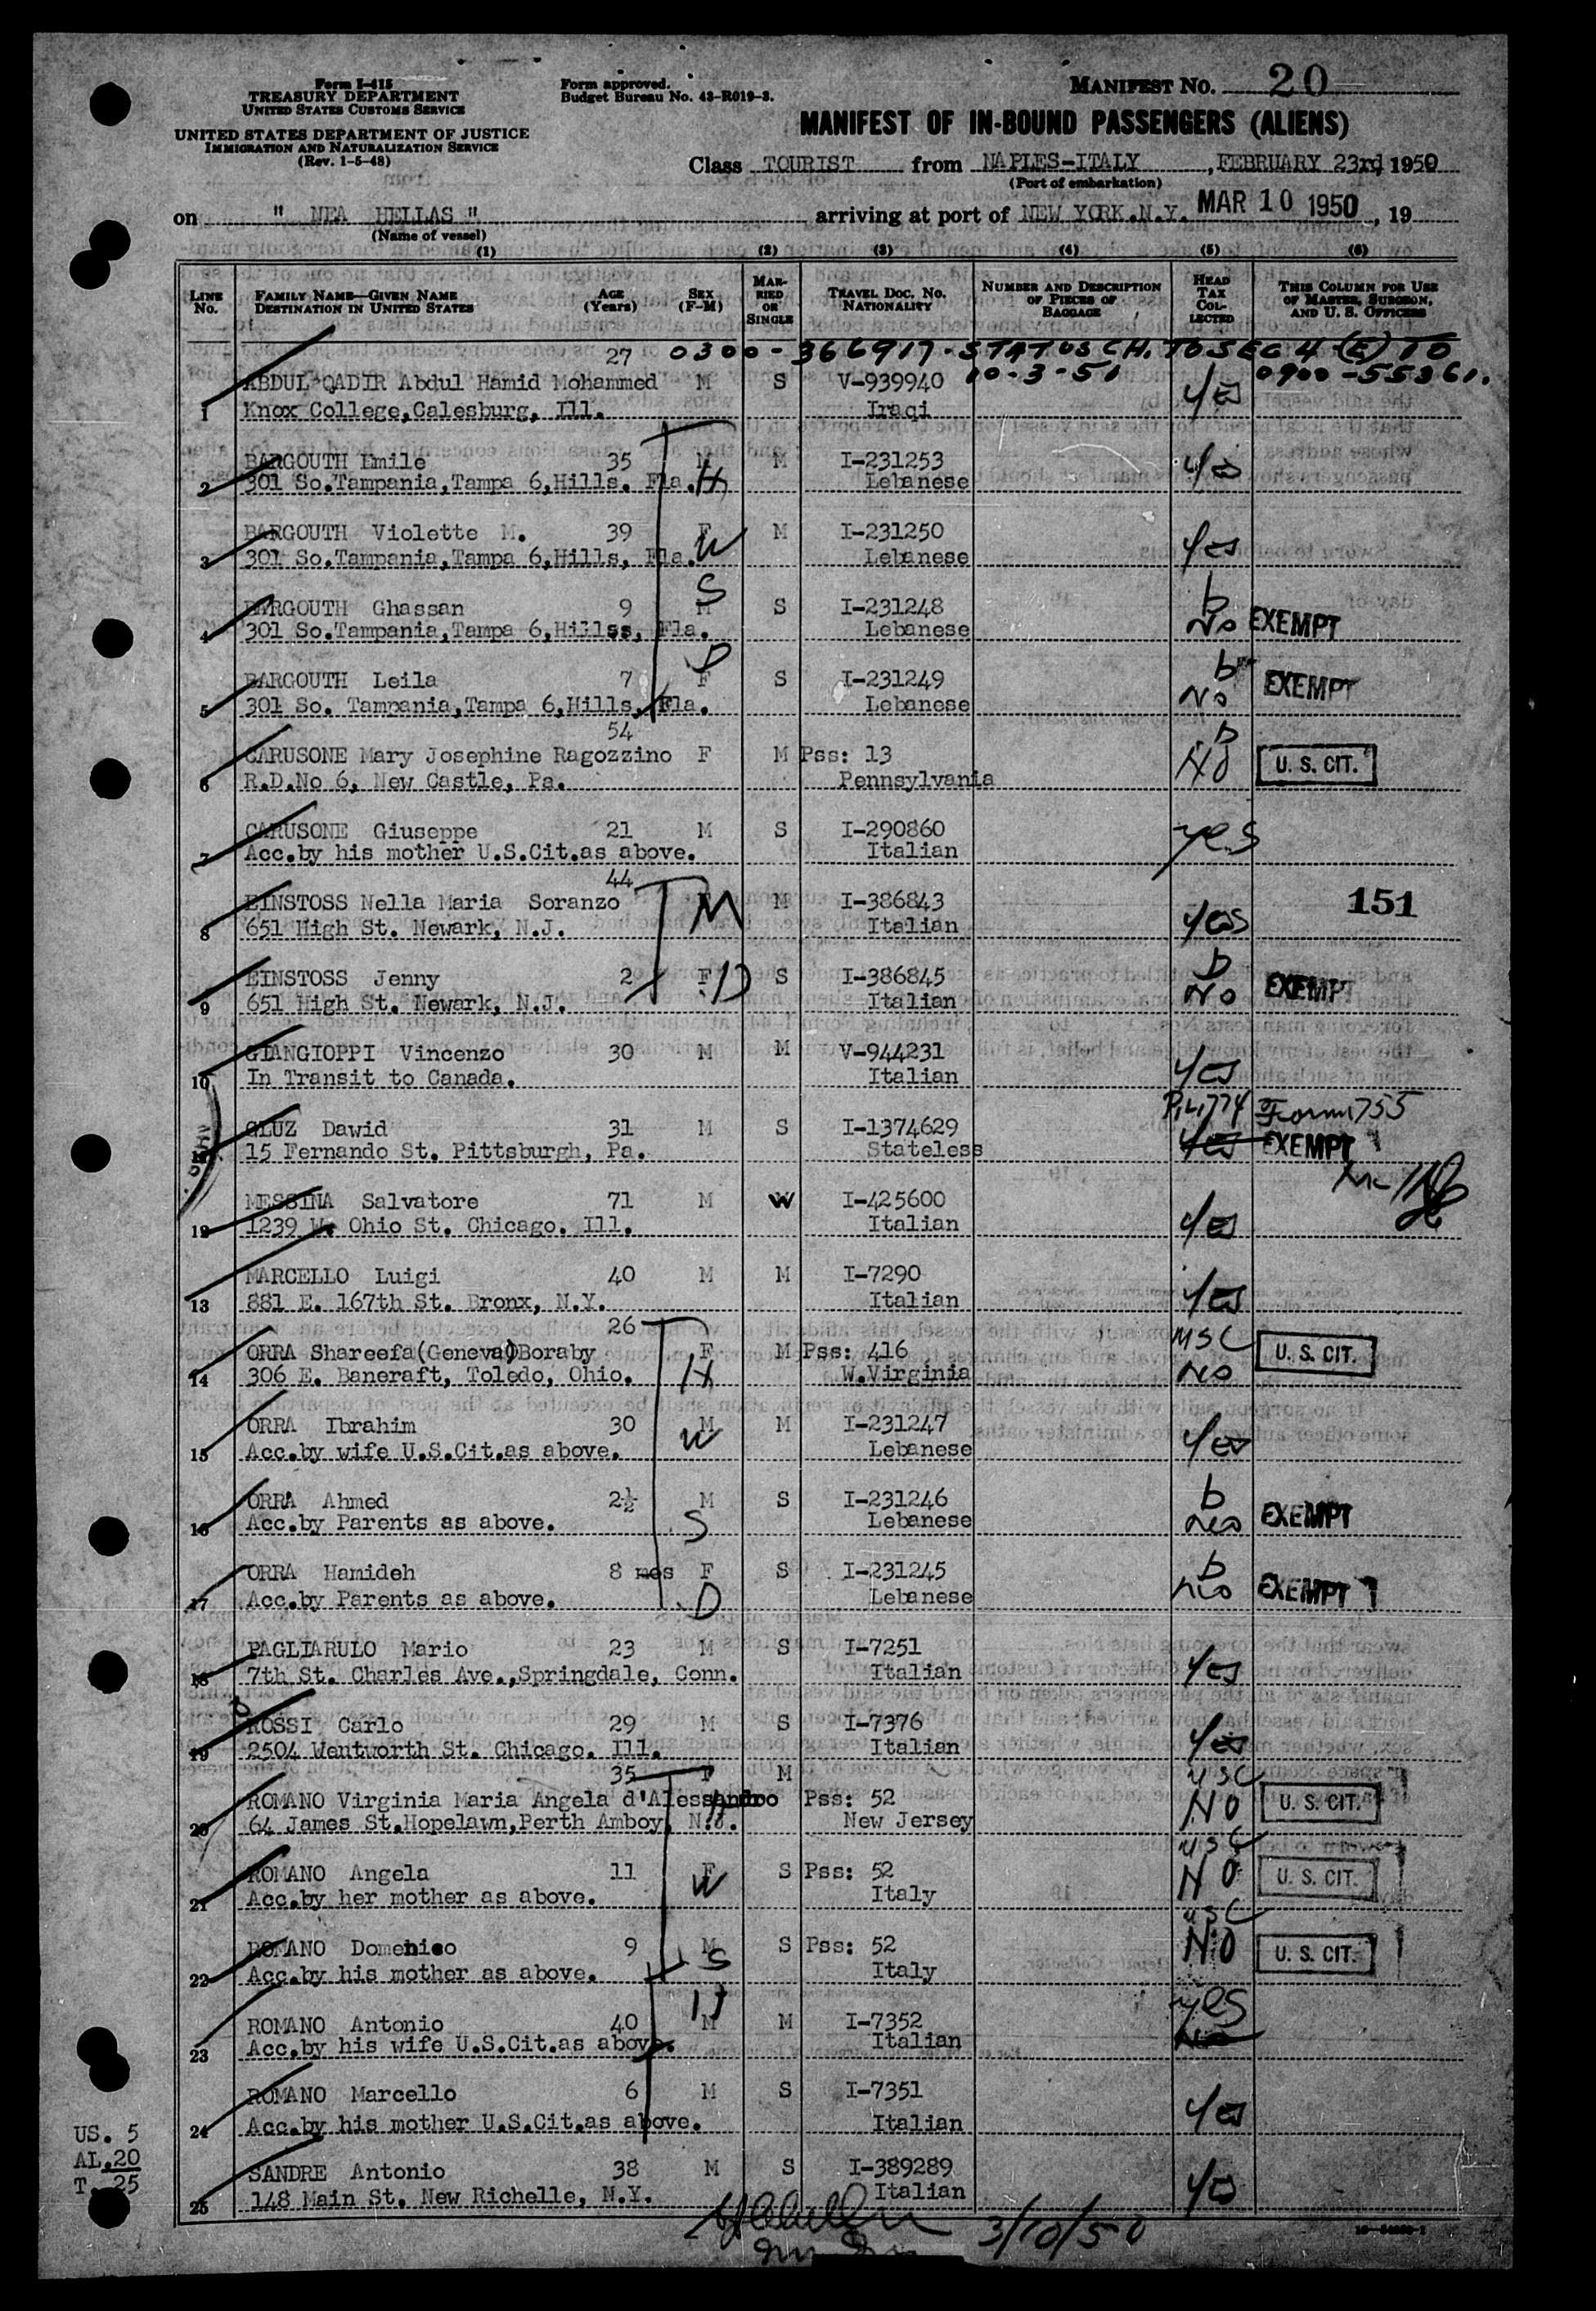 Form I-415
TREASURY DEPARTMENT
UNITED STATES CUSTOMS SERVICE
UNITED STATES DEPARTMENT OF JUSTICE
IMMIGRATION AND NATURALIZATION SERVICE
(Rev. 1-5-48)
Form approved.
Budget Bureau No. 43-R019-3.
MANIFEST NO. 20
MANIFEST OF IN-BOUND PASSENGERS (ALIENS)
Class TOURIST from NAPLES-ITALY, FEBRUARY 23rd, 1950
(Port of embarkation)
on " NEA HELLAS " arriving at port of NEW YORK.N.Y. MAR 10 1950, 19
(Name of vessel)
(1) (2) (3) (4) (5) (6)
LINE No. FAMILY NAME—GIVEN NAME DESTINATION IN UNITED STATES AGE (Years) SEX (F-M) MARRIED OR SINGLE TRAVEL DOC. NO. NATIONALITY NUMBER AND DESCRIPTION OF PIECES OF BAGGAGE HEAD TAX COLLECTED THIS COLUMN FOR USE OF MASTER, SURGEON, AND U. S. OFFICERS
27 0300-366917-STATUS CH. TO SEC 4 (E) TO
10-3-51 0900-55361.
ABDUL-QADIR Abdul Hamid Mohammed M S V-939940 Yes
1 Knox College,Calesburg, Ill. Iraqi
BARGOUTH Emile 35 M M I-231253 Yes
2 301 So.Tampania,Tampa 6,Hills. Fla. H Lebanese
BARGOUTH Violette M. 39 F M I-231250 Yes
3 301 So.Tampania,Tampa 6,Hills, Fla. W Lebanese
BARGOUTH Ghassan 9 M S S I-231248 b
4 301 So.Tampania,Tampa 6,Hillss, Fla. Lebanese No EXEMPT
BARGOUTH Leila 7 F D S I-231249 b
5 301 So. Tampania,Tampa 6,Hills, Fla. Lebanese No EXEMPT
54
CARUSONE Mary Josephine Ragozzino F M Pss: 13 No U. S. CIT.
6 R.D.No 6, New Castle, Pa. Pennsylvania
CARUSONE Giuseppe 21 M S I-290860 yes
7 Acc.by his mother U.S.Cit.as above. Italian
44
EINSTOSS Nella Maria Soranzo F M M I-386843 151
8 651 High St. Newark, N.J. Italian Yes
EINSTOSS Jenny 2 F D S I-386845 b
9 651 High St. Newark, N.J. Italian No EXEMPT
GIANGIOPPI Vincenzo 30 M M V-944231
10 In Transit to Canada. Italian Yes
P.L.774 Form 1755
GLUZ Dawid 31 M S I-1374629
11 15 Fernando St. Pittsburgh, Pa. Stateless Yes EXEMPT
MESSINA Salvatore 71 M W I-425600
12 1239 W. Ohio St. Chicago. Ill. Italian Yes
MARCELLO Luigi 40 M M I-7290
13 881 E. 167th St. Bronx, N.Y. Italian Yes
26 MSC
ORRA Shareefa(Geneva)Boraby F M Pss: 416 U. S. CIT.
14 306 E. Bancraft, Toledo, Ohio. H W.Virginia No
ORRA Ibrahim 30 M M I-231247
15 Acc.by wife U.S.Cit.as above. W Lebanese Yes
ORRA Ahmed 2½ M S I-231246 b
16 Acc.by Parents as above. S Lebanese No EXEMPT
ORRA Hamideh 8 mos F S I-231245 b
17 Acc.by Parents as above. D Lebanese No EXEMPT
PAGLIARULO Mario 23 M S I-7251
18 7th St. Charles Ave.,Springdale, Conn. Italian Yes
ROSSI Carlo 29 M S I-7376
19 2504 Wentworth St. Chicago. Ill. Italian Yes
35 F M USC
ROMANO Virginia Maria Angela d'Alessandro Pss: 52 No U. S. CIT.
20 64 James St.Hopelawn,Perth Amboy, N.J. New Jersey
USC
ROMANO Angela 11 F S Pss: 52 No U. S. CIT.
21 Acc.by her mother as above. W Italy
USC
ROMANO Domenico 9 M S Pss: 52 No U. S. CIT.
22 Acc.by his mother as above. S Italy
ROMANO Antonio 40 M M I-7352 yes
23 Acc.by his wife U.S.Cit.as above. Italian No
ROMANO Marcello 6 M S I-7351
24 Acc.by his mother U.S.Cit.as above. Italian Yes
SANDRE Antonio 38 M S I-389289
25 148 Main St. New Richelle, N.Y. Italian Yes
US. 5
AL. 20
T. 25
3/10/50